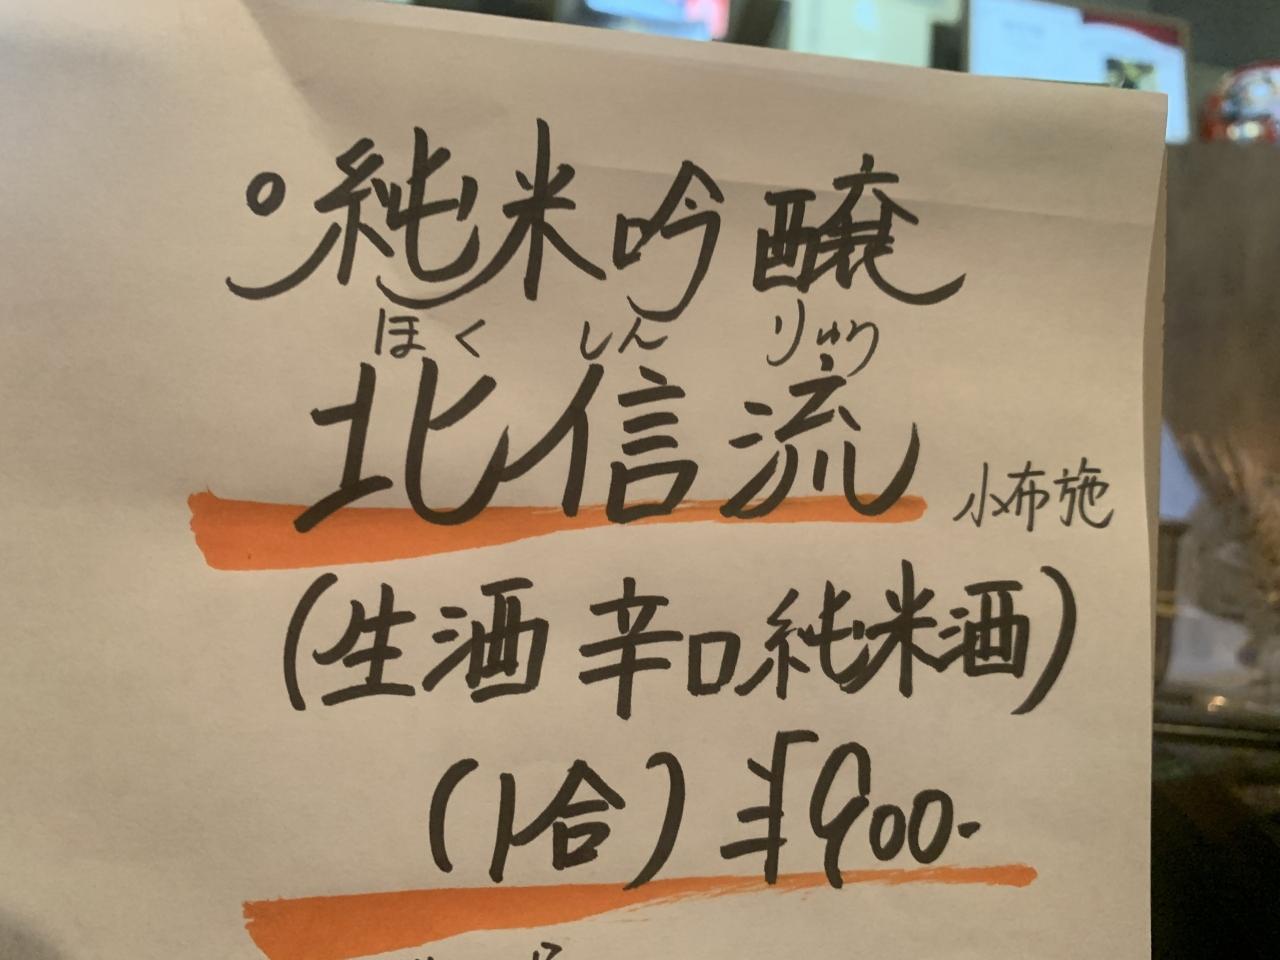 °純米吟醸
ほくしんりゅう
北信流 小布施
(生酒 辛口純米酒)
(1合) ¥900-